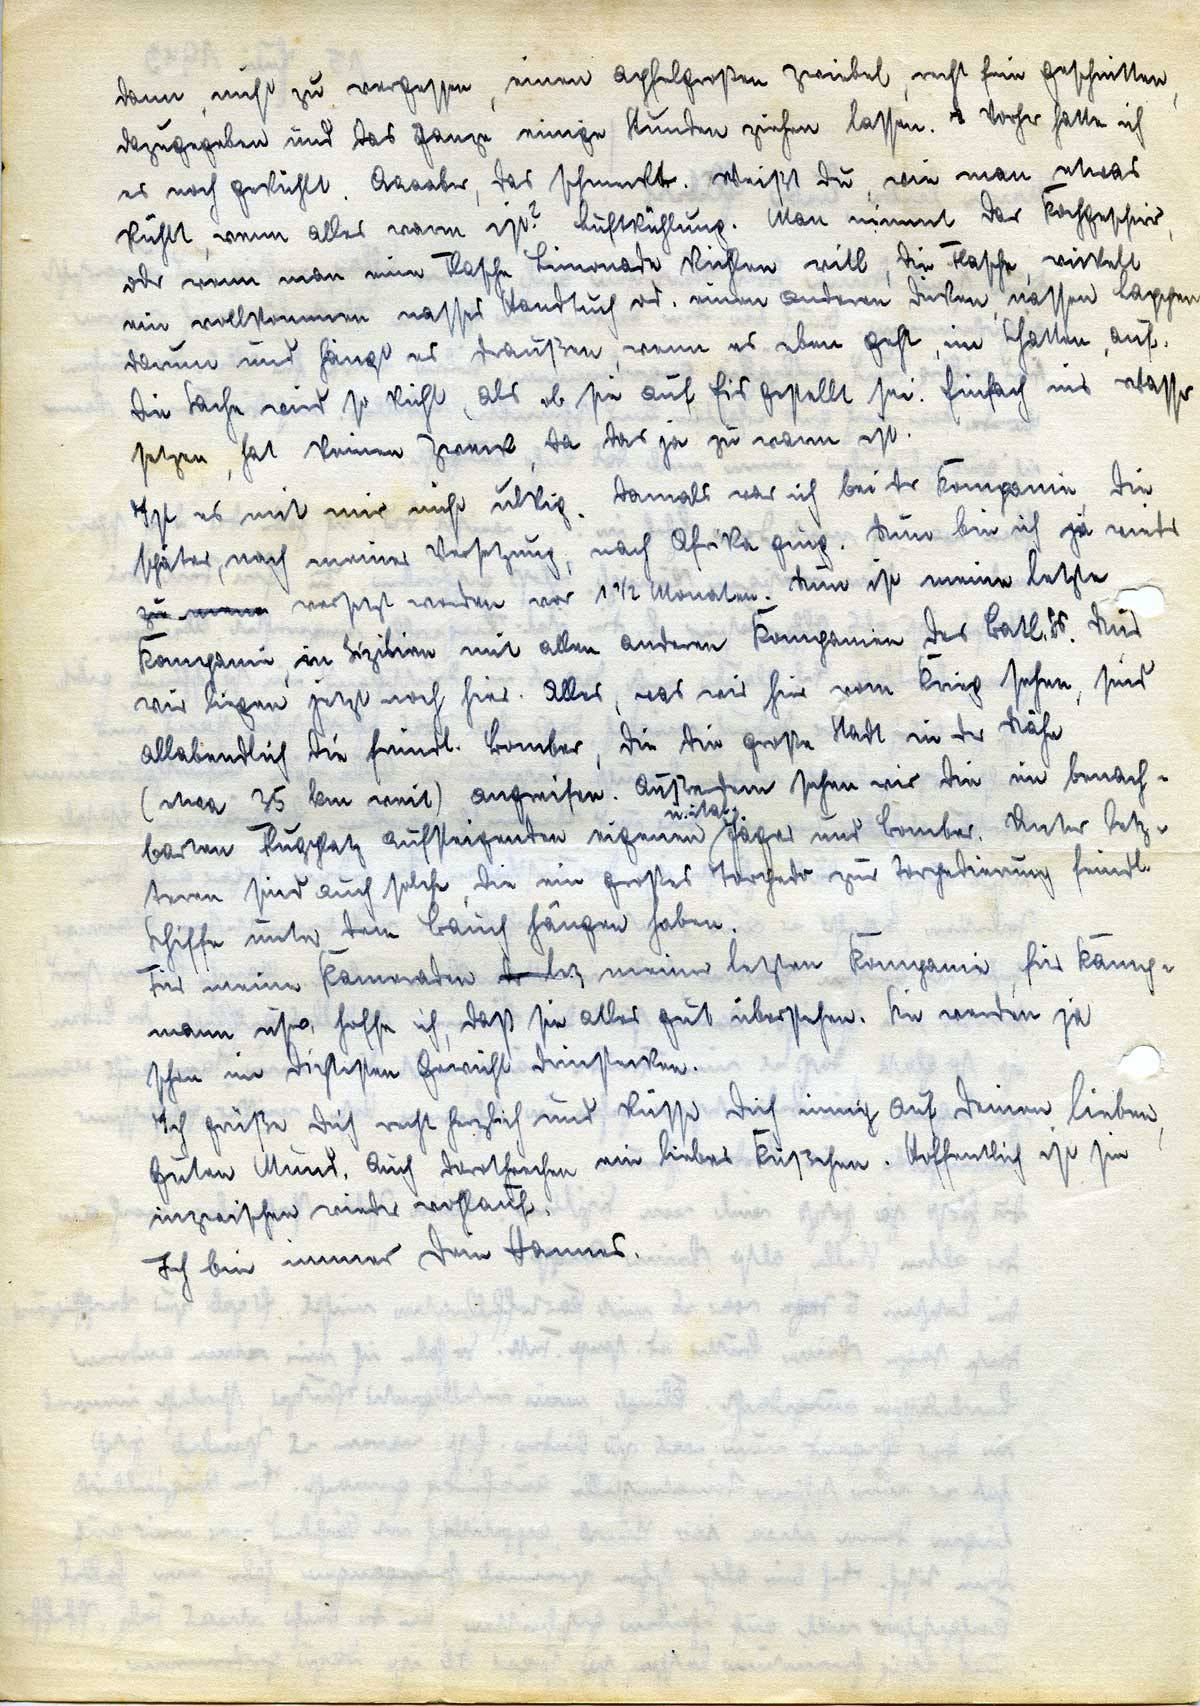 dann, nicht zu vergessen, einen apfelgroßen Zwiebel, recht fein geschnitten,
dazugegeben und das ganze einige Stunden ziehen lassen. Vorher hatte ich
es noch gekühlt. Aaaaber, das schmeckte. Weißt Du, wie man etwas
kühlt, wenn alles warm ist? Luftkühlung. Man nimmt das Kochgeschirr,
oder wenn man eine Flasche Limonade kühlen will, die Flasche, wickelt
ein vollkommen nasses Handtuch od. einen anderen dicken, nassen Lappen
darum und hängt es draußen, wenn es eben geht, im Schatten, auf.
Die Sache wird so kühl, als ob sie auf Eis gestellt sei. Einfach ins Wasser
setzen, hat keinen Zweck, da das ja zu warm ist.
Ist es mit mir nicht ulkig. Damals war ich bei der Kompanie die
später, nach meiner Versetzung, nach Afrika ging. Nun bin ich ja wieder
versetzt worden vor 1 1/2 Monaten. Nun ist meine letzte
Kompanie, in Sizilien mit allen anderen Kompanien des Batl.s. Und
wir liegen jetzt noch hier. Alles, was wir hier vom Krieg sehen, sind
allabendlich die feindl. Bomber, die die große Stadt in der Nähe
(etwa 35 km weit) angreifen. Außerdem sehen wir die im benach-
barten Flugplatz aufsteigenden eigenen u. ital. Jäger und Bomber. Unter letz-
teren sind auch solche, die ein großes Torpedo zur Torpedierung feindl.
Schiffe unter dem Bauch hängen haben.
Für meine Kameraden meiner letzten Kompanie, für Kamp-
mann usw. hoffe ich, daß sie alles gut überstehen. Sie werden ja
schon im dichtesten Gewühl drinstecken.
Ich grüße Dich recht herzlich und küsse Dich innig auf Deinen lieben,
guten Mund. Auch Dorothechen ein liebes Küßchen. Hoffentlich ist sie
inzwischen wieder wohlauf.
Ich bin immer Dein Hannes.